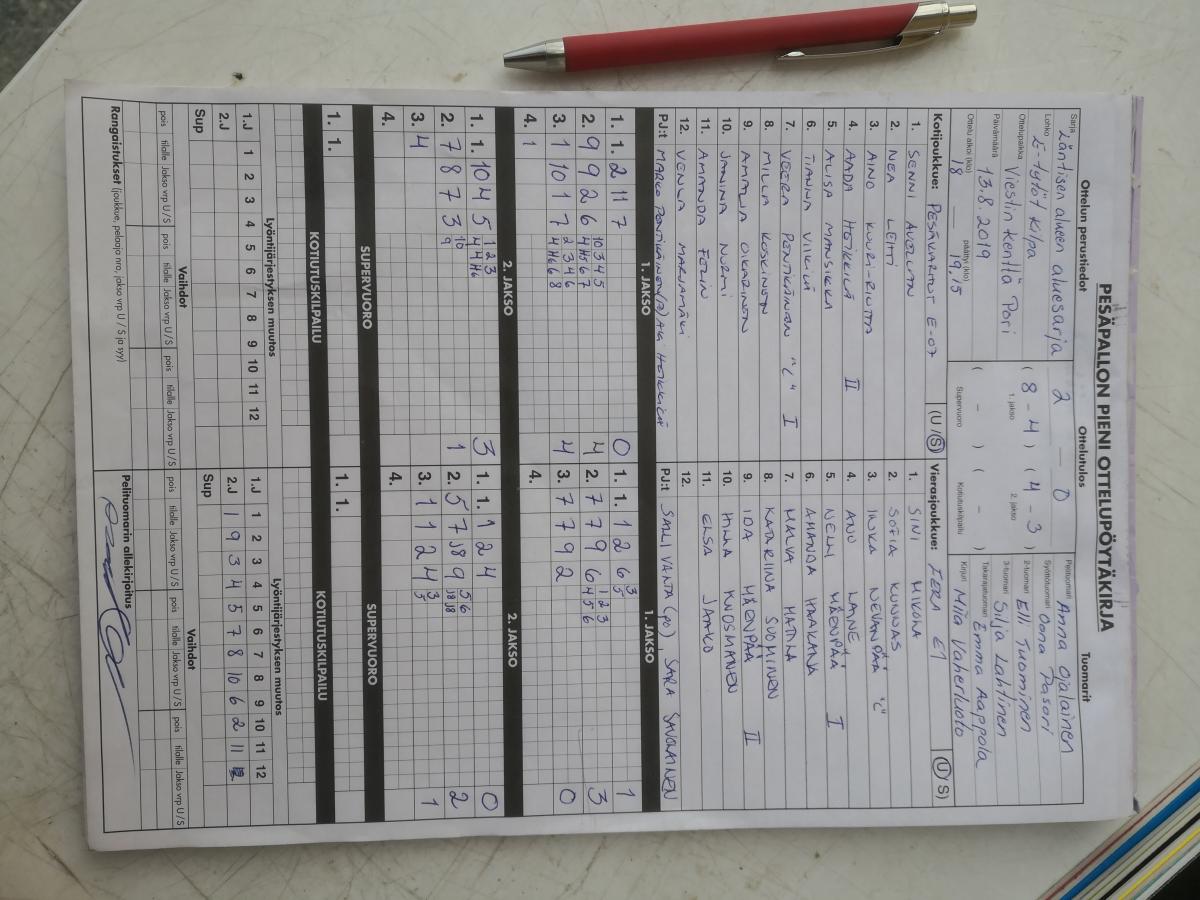 PESÄPALLON PIENI OTTELUPÖYTÄKIRJA
Ottelun perustiedot
Ottelutulos
Tuomarit
Sarja Läntisen alueen aluesarja
Lohko E-tytöt Kilpa
Ottelupaikka Viestin kenttä Pori
Päivämäärä 13.8.2019
Ottelu alkoi (klo) 18 — päättyi (klo) 19.15
2 — 0
( 8 - 4 ) ( 4 - 3 )
1. jakso 2. jakso
( - ) ( - )
Supervuoro Kotiutuskilpailu
Pelituomari Anna Ojalainen
Syöttötuomari Oona Pasori
2-tuomari Elli Tuominen
3-tuomari Silja Lahtinen
Takarajatuomari Emma Aappola
Kirjuri Milla Vaherluoto
Kotijoukkue: PESÄVARTUT E-07 (U/S)
1. SENNI
2. NEA LEITTI
3. AINO
4. AADA HEIKKILÄ II
5. ALISA MANSIKKA
6. TIANNA
7. VEERA PENTIKÄINEN "C" I
8. MILLA KOSKINEN
9. AMALIA OIKARINEN
10. JANINA NURMI
11. AMANDA
12. VENLA MARJAMÄKI
PJ:t MARKO PENTIKÄINEN AKI HEIKKILÄ
Vierasjoukkue: FERA E1 (U/S)
1. SINI MIKOLA
2. SOFIA KUNNAS
3. INKA NEVANPÄÄ "C"
4. AINO LAINE
5. NELLI MÄENPÄÄ I
6. AMANDA HAAKANA
7. MALVA HATAKA
8. KATARIINA SUOMINEN
9. IDA MÄENPÄÄ II
10. HILLA KNUOSMANEN
11. ELSA JAAKO
12.
PJ:t SALLI VANTA (po), SARA SAVOLAINEN
1. JAKSO
1. JAKSO
1. 1. 2 11 7 0
2. 9 9 2 6 4
3. 1 10 1 7 4
4. 1
1. 1. 1 2 6 1
2. 7 7 9 6 3
3. 7 7 9 2 0
4.
2. JAKSO
2. JAKSO
1. 1. 10 4 5 3
2. 7 8 7 3 1
3. 4
4.
1. 1. 1 2 4 0
2. 5 7 9 2
3. 1 1 2 4 1
4.
SUPERVUORO
SUPERVUORO
1. 1.
1. 1.
KOTIUTUSKILPAILU
KOTIUTUSKILPAILU
Lyöntijärjestyksen muutos
Lyöntijärjestyksen muutos
1.J 1 2 3 4 5 6 7 8 9 10 11 12
2.J
Sup
1.J 1 2 3 4 5 6 7 8 9 10 11 12
2.J 1 9 3 4 5 7 8 10 6 2 11
Sup
Vaihdot
Vaihdot
pois tilalle Jakso vrp U/S pois tilalle Jakso vrp U/S pois tilalle Jakso vrp U/S
pois tilalle Jakso vrp U/S pois tilalle Jakso vrp U/S pois tilalle Jakso vrp U/S
Rangaistukset (joukkue, pelaaja nro, jakso vrp U / S ja syy)
Pelituomarin allekirjoitus